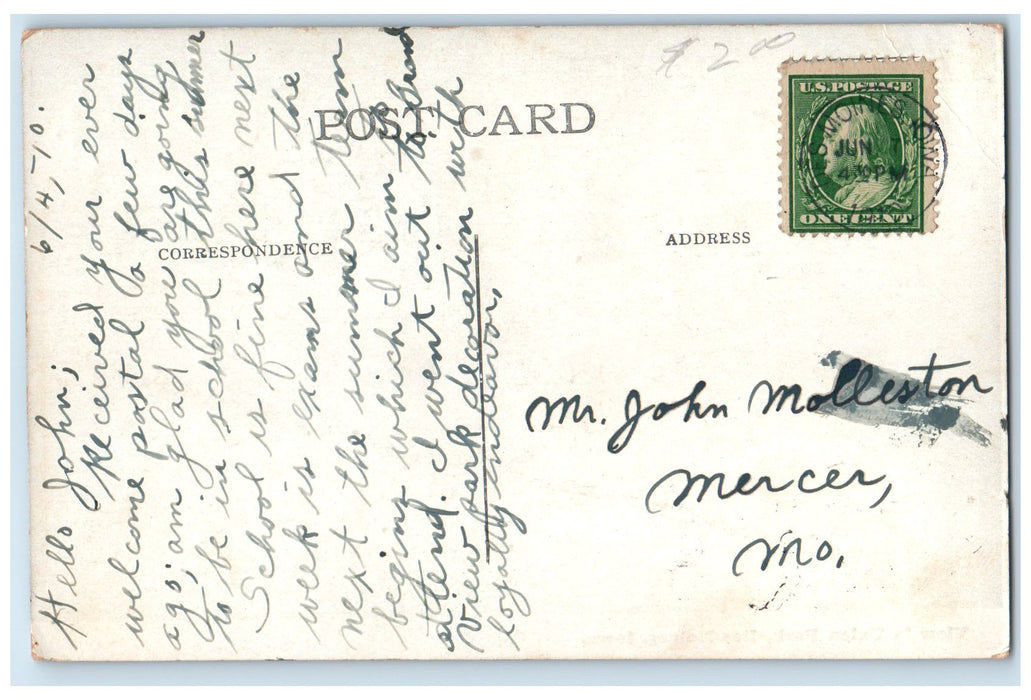 $2.00
POST CARD
U.S. POSTAGE
ONE CENT
MOINES IOWA
JUN 7
4 30 PM
CORRESPONDENCE
ADDRESS
6/4,-10.
Hello John;
Received your ever
welcome postal a few days
ago; am glad you are going
to be in school this summer
School is fine here next
week is exams and the
next the summer term
begins which I aim to
attend. I went out to Grand
View park decoration with
loyalty endeavor,
Mr. John Molleston
Mercer,
Mo.